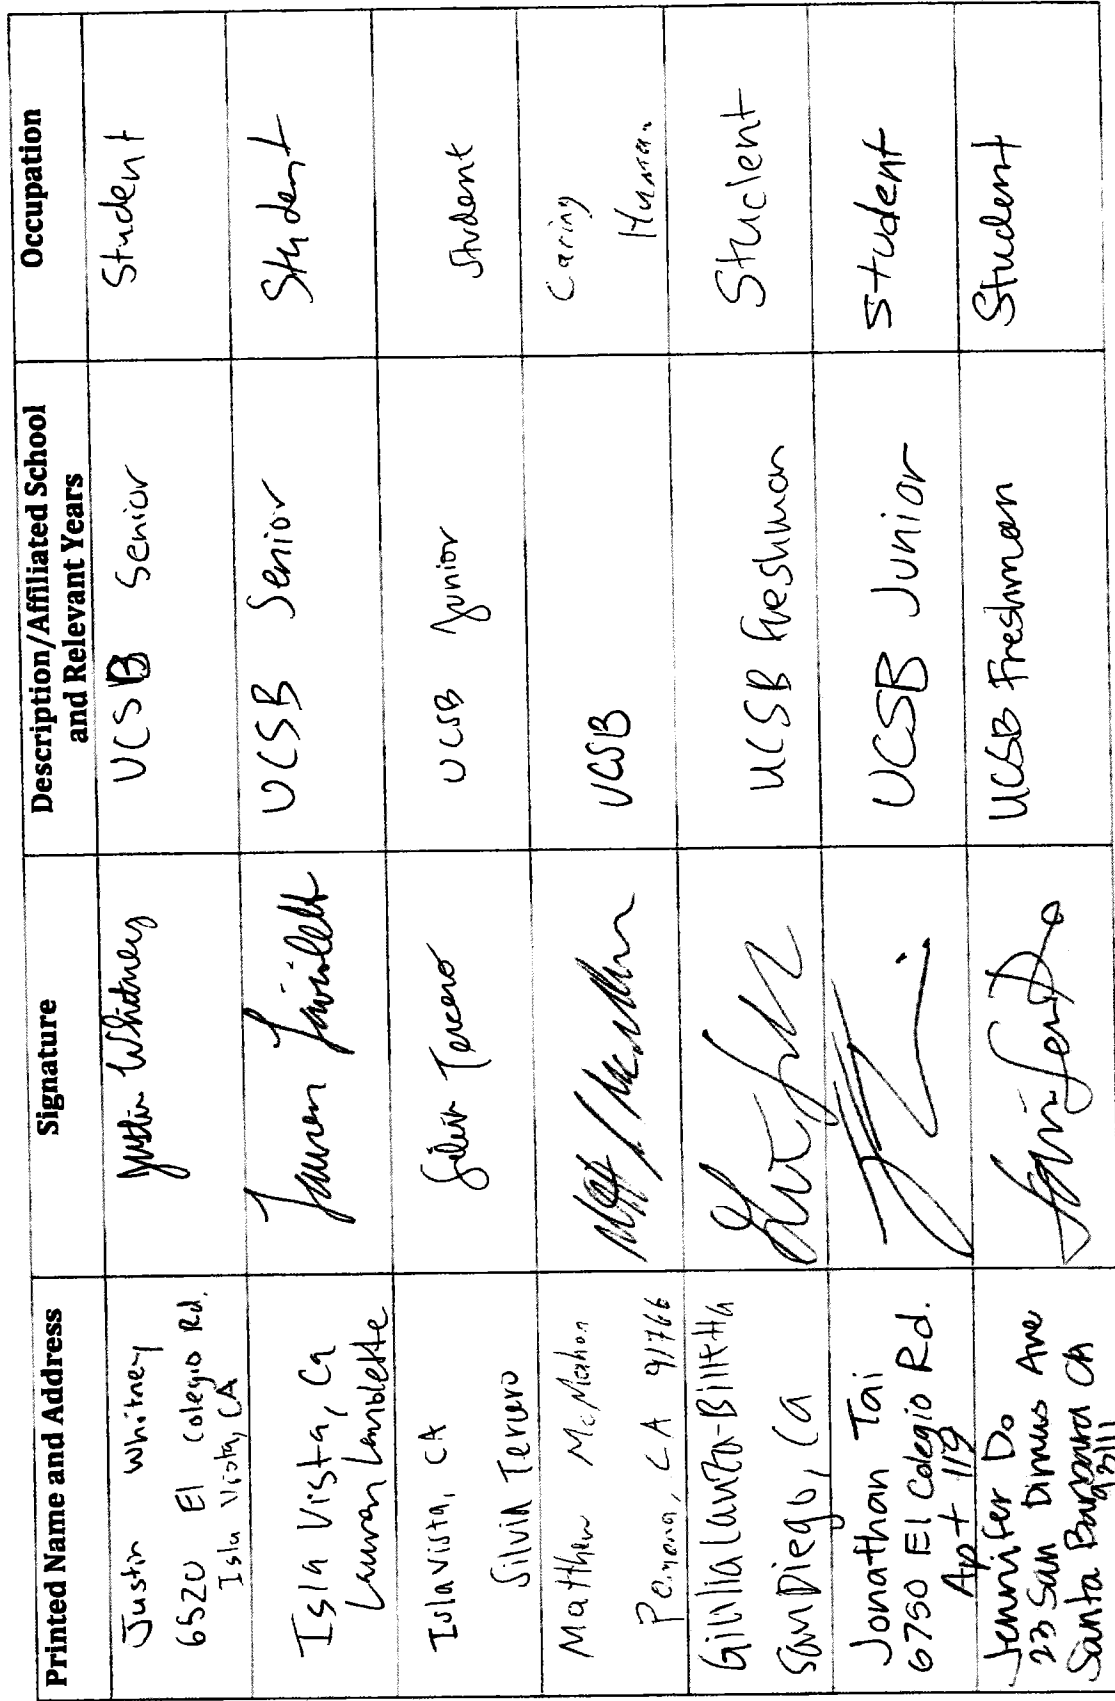 Printed Name and Address
Signature
Description/Affiliated School
and Relevant Years
Occupation
Justin Whitney
6520 El Colegio Rd.
Isla Vista, CA
Justin Whitney
UCSB Senior
Student
Isla Vista, Ca
Lauren
Lauren
UCSB Senior
Student
Isla Vista, CA
Silvia Tercero
Silvia Tercero
UCSB Junior
Student
Matthew McMahon
Pomona, CA 91766
UCSB
Caring
Human
San Diego, Ca
UCSB Freshman
Student
Jonathan Tai
6750 El Colegio Rd.
Apt 119
UCSB Junior
Student
Jennifer Do
23 San Dimus Ave
Santa Barbara CA
93111
Jennifer Do
UCSB Freshman
Student